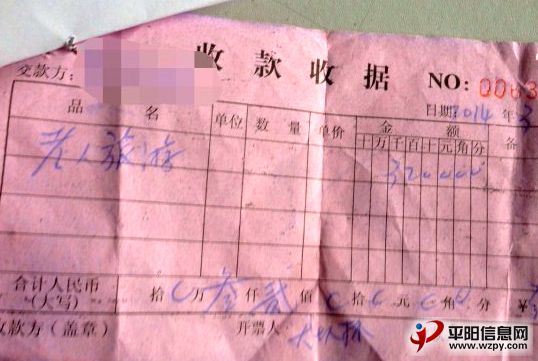 收款收据 NO: 0063
交款方:
日期 2014 年 3
品 名 单位 数 量 单价 金 额 备
十 万 千 百 十 元 角 分
老人旅游 320000
合计人民币
(大写) 拾 万 叁 仟 贰 佰 拾 元 角 分 ¥
收款方(盖章) 开票人:
平阳信息网
www.wzpy.com